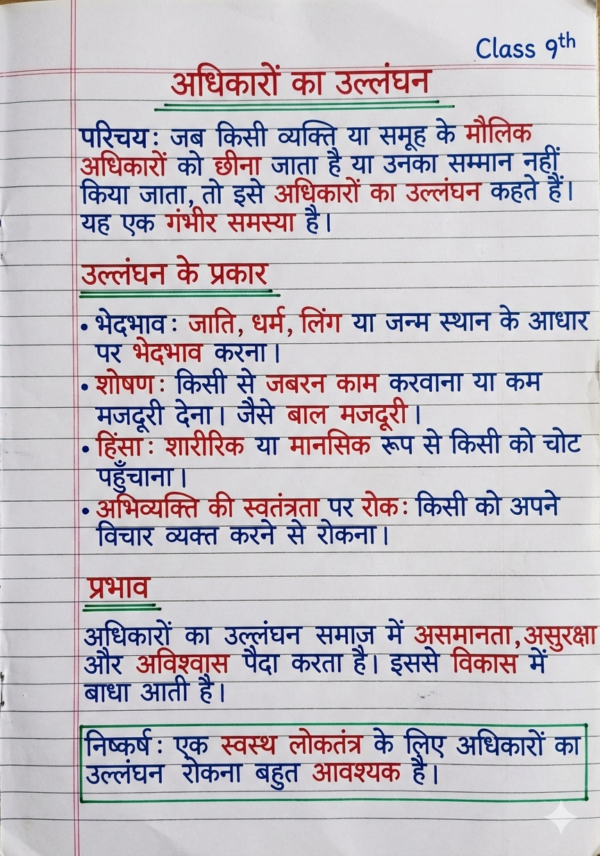 Class 9th
अधिकारों का उल्लंघन
परिचय : जब किसी व्यक्ति या समूह के मौलिक
अधिकारों को छीना जाता है या उनका सम्मान नहीं
किया जाता, तो इसे अधिकारों का उल्लंघन कहते हैं।
यह एक गंभीर समस्या है।
उल्लंघन के प्रकार
• भेदभाव : जाति, धर्म, लिंग या जन्म स्थान के आधार
पर भेदभाव करना।
• शोषण : किसी से जबरन काम करवाना या कम
मजदूरी देना। जैसे बाल मजदूरी।
• हिंसा : शारीरिक या मानसिक रूप से किसी को चोट
पहुँचाना।
• अभिव्यक्ति की स्वतंत्रता पर रोक : किसी को अपने
विचार व्यक्त करने से रोकना।
प्रभाव
अधिकारों का उल्लंघन समाज में असमानता, असुरक्षा
और अविश्वास पैदा करता है। इससे विकास में
बाधा आती है।
निष्कर्ष : एक स्वस्थ लोकतंत्र के लिए अधिकारों का
उल्लंघन रोकना बहुत आवश्यक है।